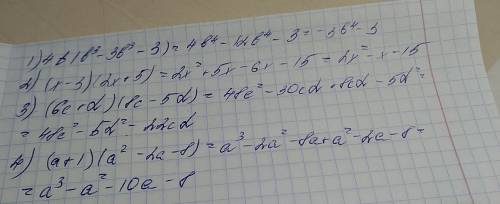 1) 4b(b³-3b³-3)=4b⁴-12b⁴-3=-3b⁴-3
2) (x-3)(2x+5)=2x²+5x-6x-15=2x²-x-15
3) (6c+d)(8c-5d)=48c²-30cd+8cd-5d²=
=48c²-5d²-22cd
4) (a+1)(a²-2a-8)=a³-2a²-8a+a²-2a-8=
=a³-a²-10a-8